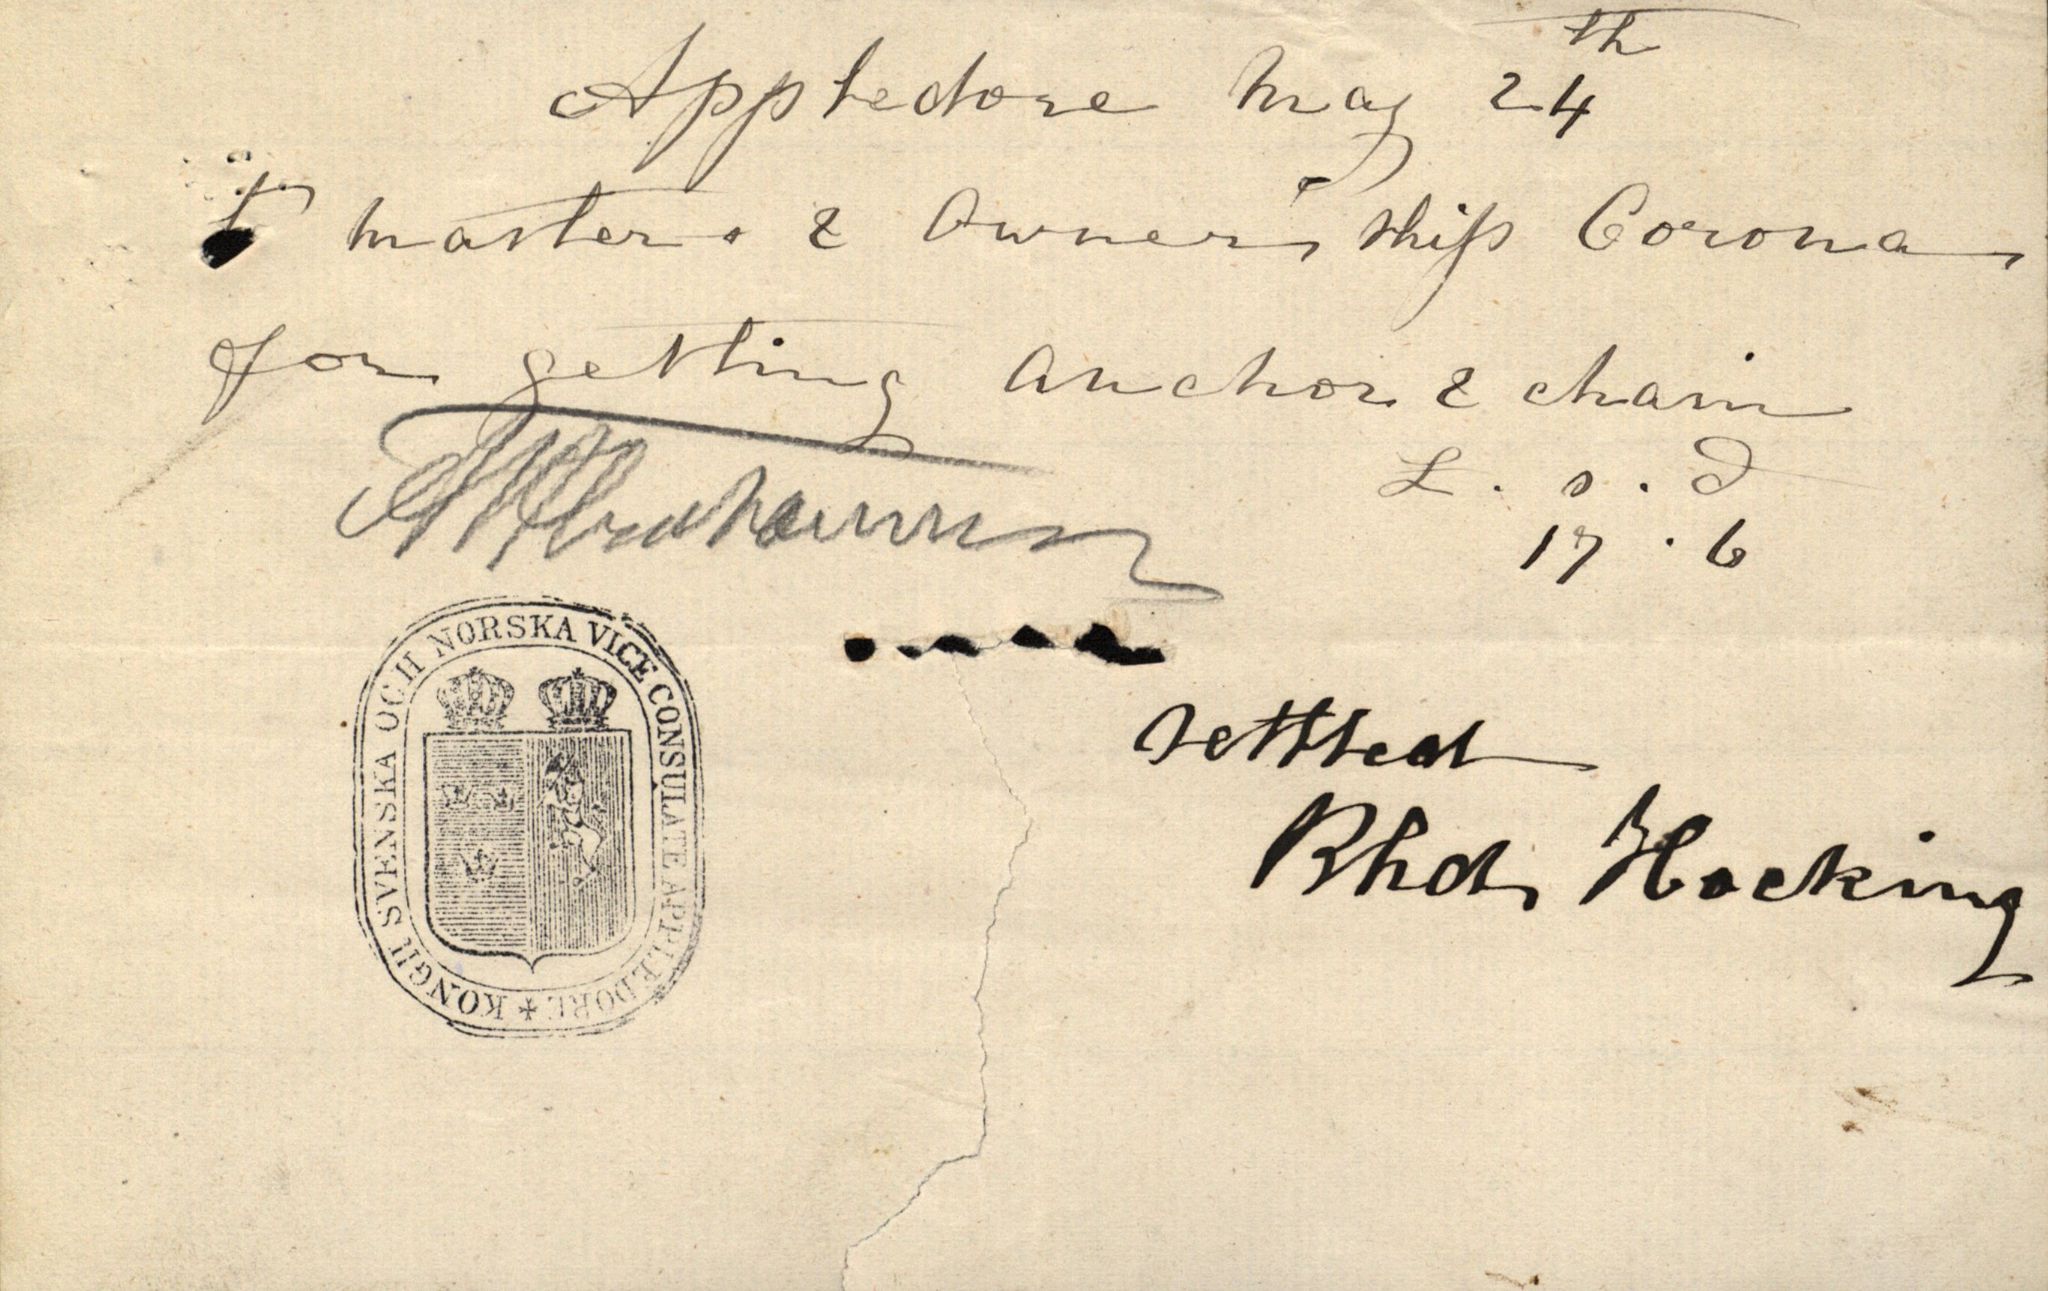 Appledore May 24th
To master & Owners ship Corona
for getting anchor & chain
L . s . d
17 . 6
settled
Rhd. Hocking
KONGL SVENSKA OCH NORSKA VICE CONSULATE APPLEDORE